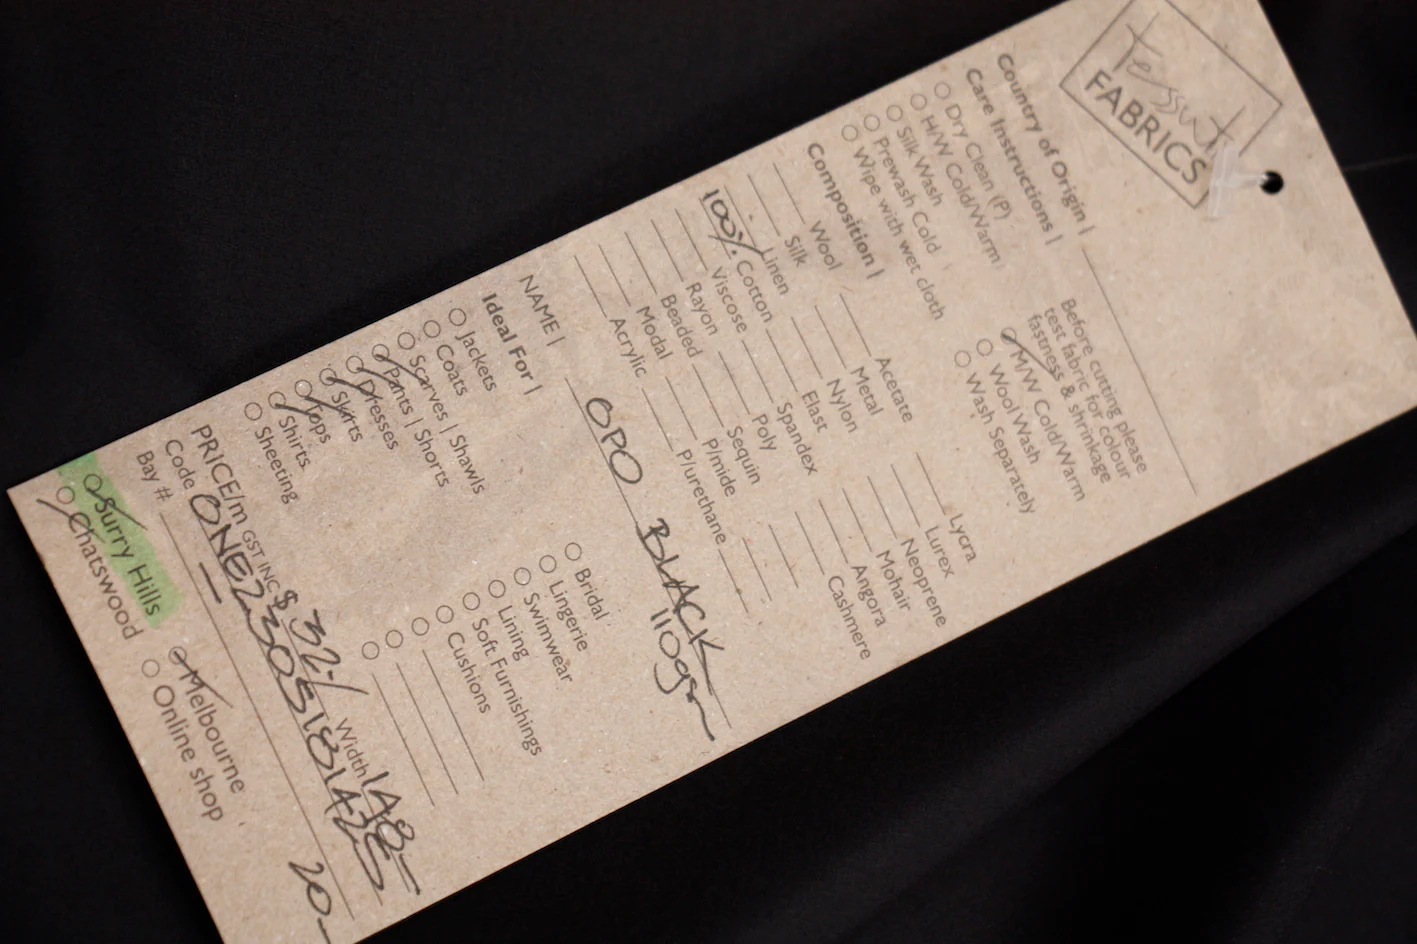 tessuti
FABRICS
Country of Origin |
Care Instructions |
Dry Clean (P)
H/W Cold/Warm
Silk Wash
Prewash Cold
Wipe with wet cloth
Before cutting please
test fabric for colour
fastness & shrinkage
M/W Cold/Warm
Wool Wash
Wash Separately
Composition |
Wool
Silk
Linen
100% Cotton
Viscose
Rayon
Beaded
Modal
Acrylic
Acetate
Metal
Nylon
Elast
Spandex
Poly
Sequin
P/mide
P/urethane
Lycra
Lurex
Neoprene
Mohair
Angora
Cashmere
NAME | OPO BLACK
110gsm
Ideal For |
Jackets
Coats
Scarves | Shawls
Pants | Shorts
Dresses
Skirts
Tops
Shirts
Sheeting
Bridal
Lingerie
Swimwear
Lining
Soft Furnishings
Cushions
PRICE/m GST INC $ 32-/ Width 148-
Code
Bay #
20-
Surry Hills
Chatswood
Melbourne
Online shop